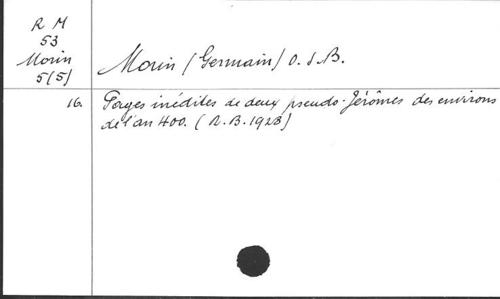 R M
53
Morin
5(5)
Morin (Germain) O.S.B.
16.
Pages inédites de deux pseudo-Jérômes des environs
de l'an 400. (R.B. 1928)